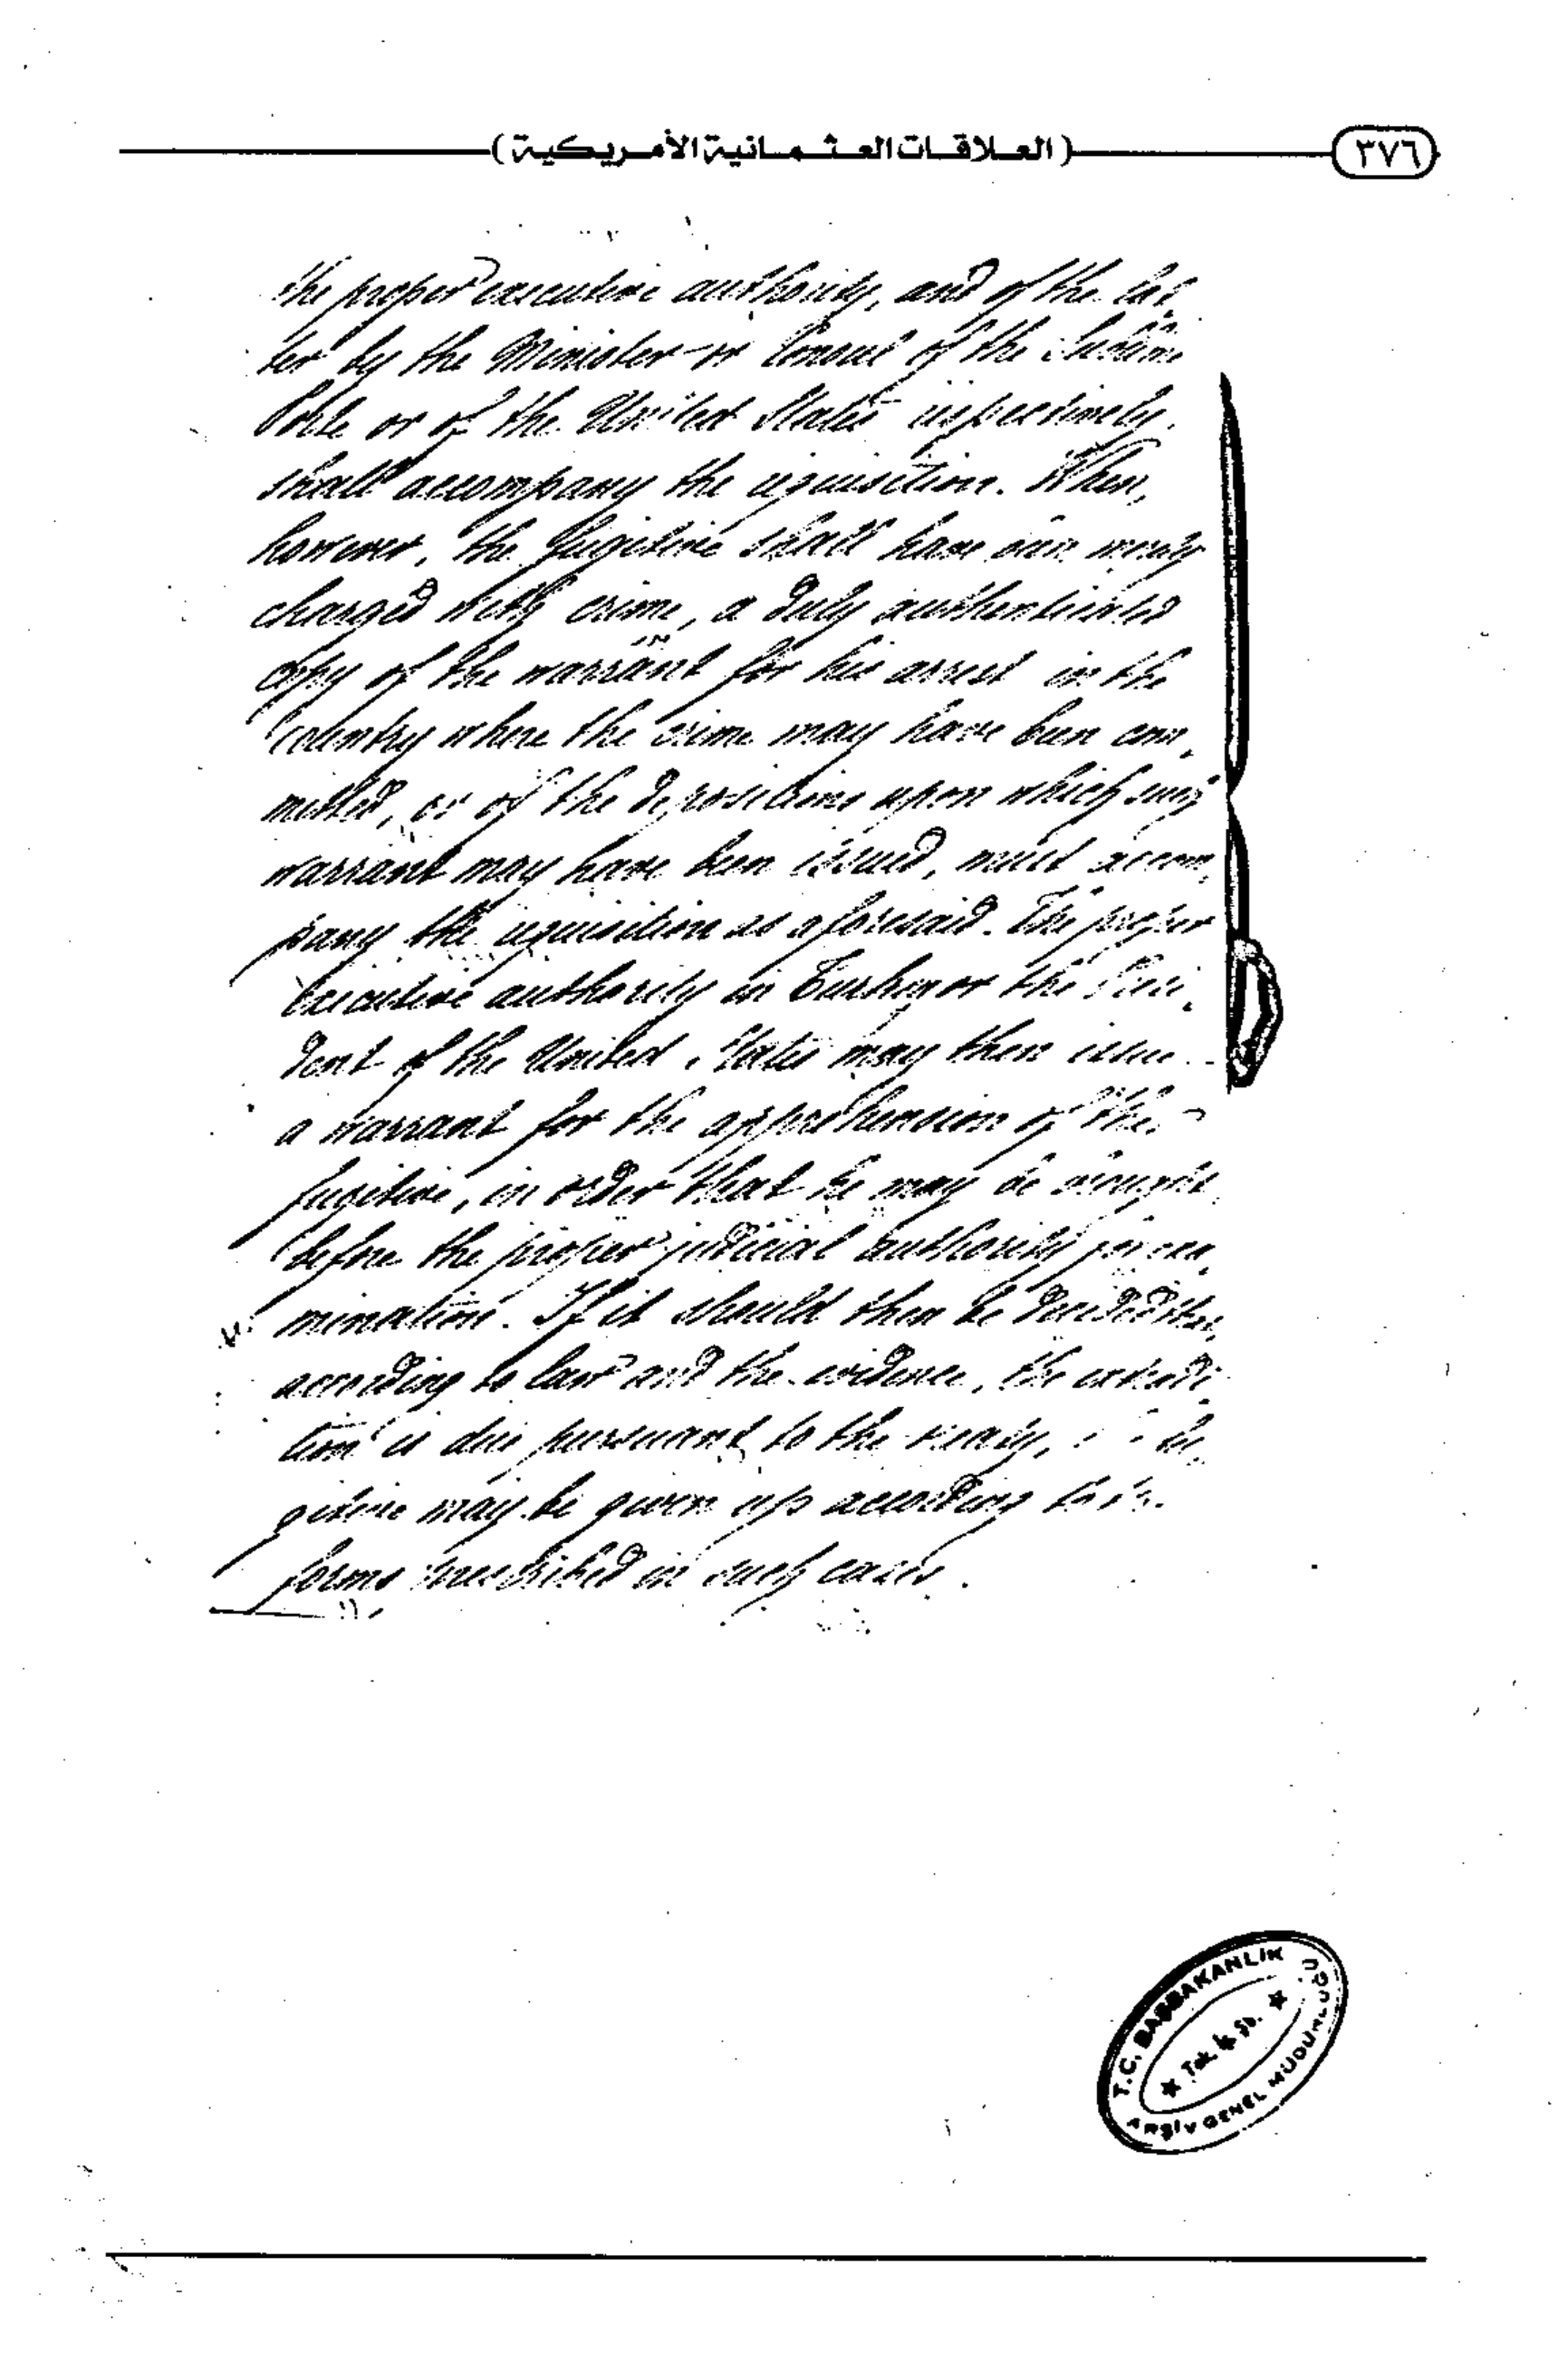 (العلاقات العثمانية الأمريكية)
٣٧٦
the proper executive authority, and of the lat,
ter by the Minister or Consul of the Sublime
Porte or of the United States respectively,
shall accompany the requisition. When,
however, the fugitive shall have been merely
charged with crime, a duly authenticated
copy of the warrant for his arrest in the
Country where the crime may have been com,
mitted, or of the depositions upon which such
warrant may have been issued, must accom,
pany the requisition as aforesaid. The proper
Executive authority in Turkey or the Presi,
dent of the United States may then issue
a warrant for the apprehension of the
fugitive, in order that he may be brought
before the proper judicial authority for exa,
mination. If it should then be decided that,
according to law and the evidence, the extradi,
tion is due pursuant to the treaty, fu,
gitive may be given up according to the
forms prescribed in such cases.
T.C. BAŞBAKANLIK
ARŞİV GENEL MÜDÜRLÜĞÜ